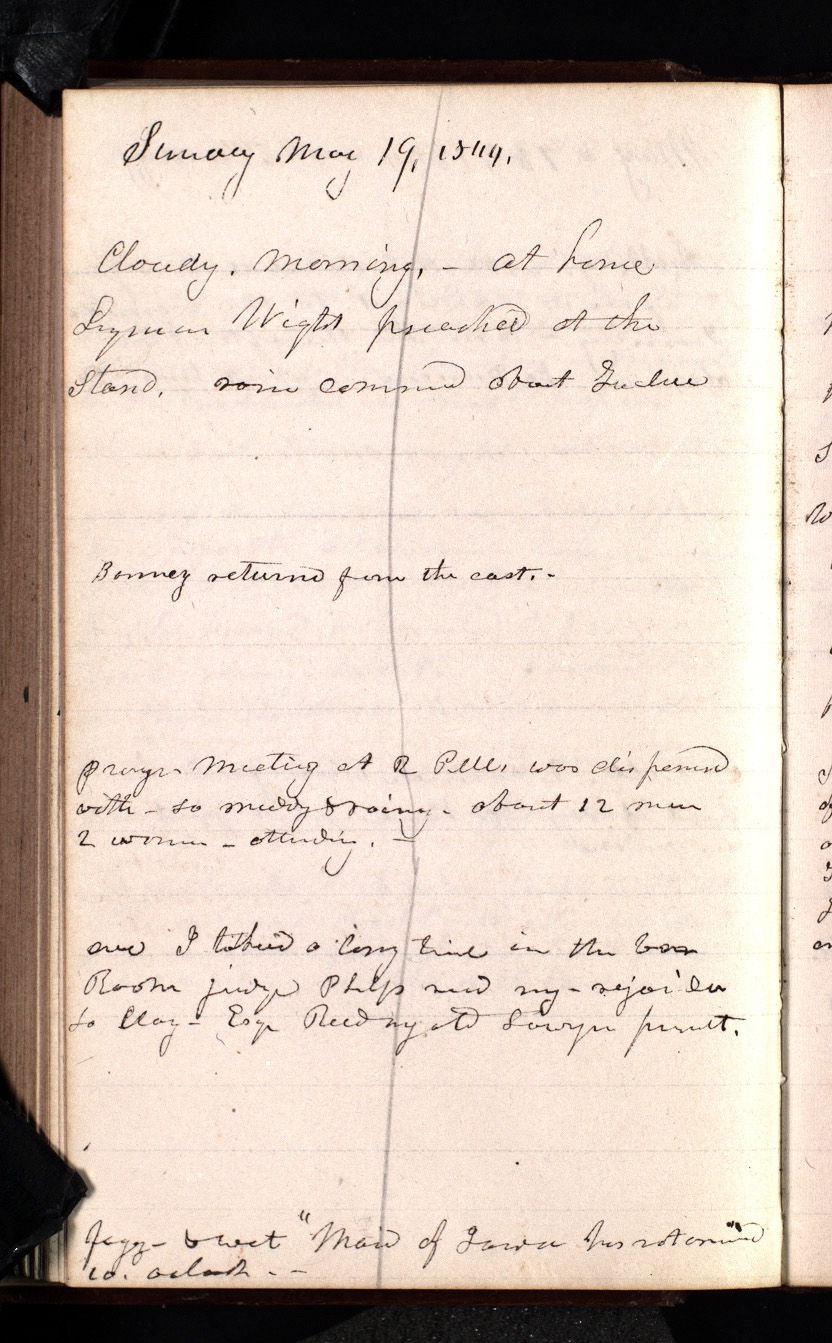 Sunday May 19, 1844.
Cloudy. morning. - at home
Lyman Wight preached at the
Stand. rain commened about Twelve
Bonney returnd from the east. -
prayer Meeting at R was dispensed
with - so muddy & rainy. about 12 men
2 women - attending. -
eve I talked a long time in the bar
Room judge Phelps read my - rejoinder
to Clay - Esqr Reed my old Lawyer present.
foggy - & wet "Maid of Iowa has not arrived"
10. oclock. -